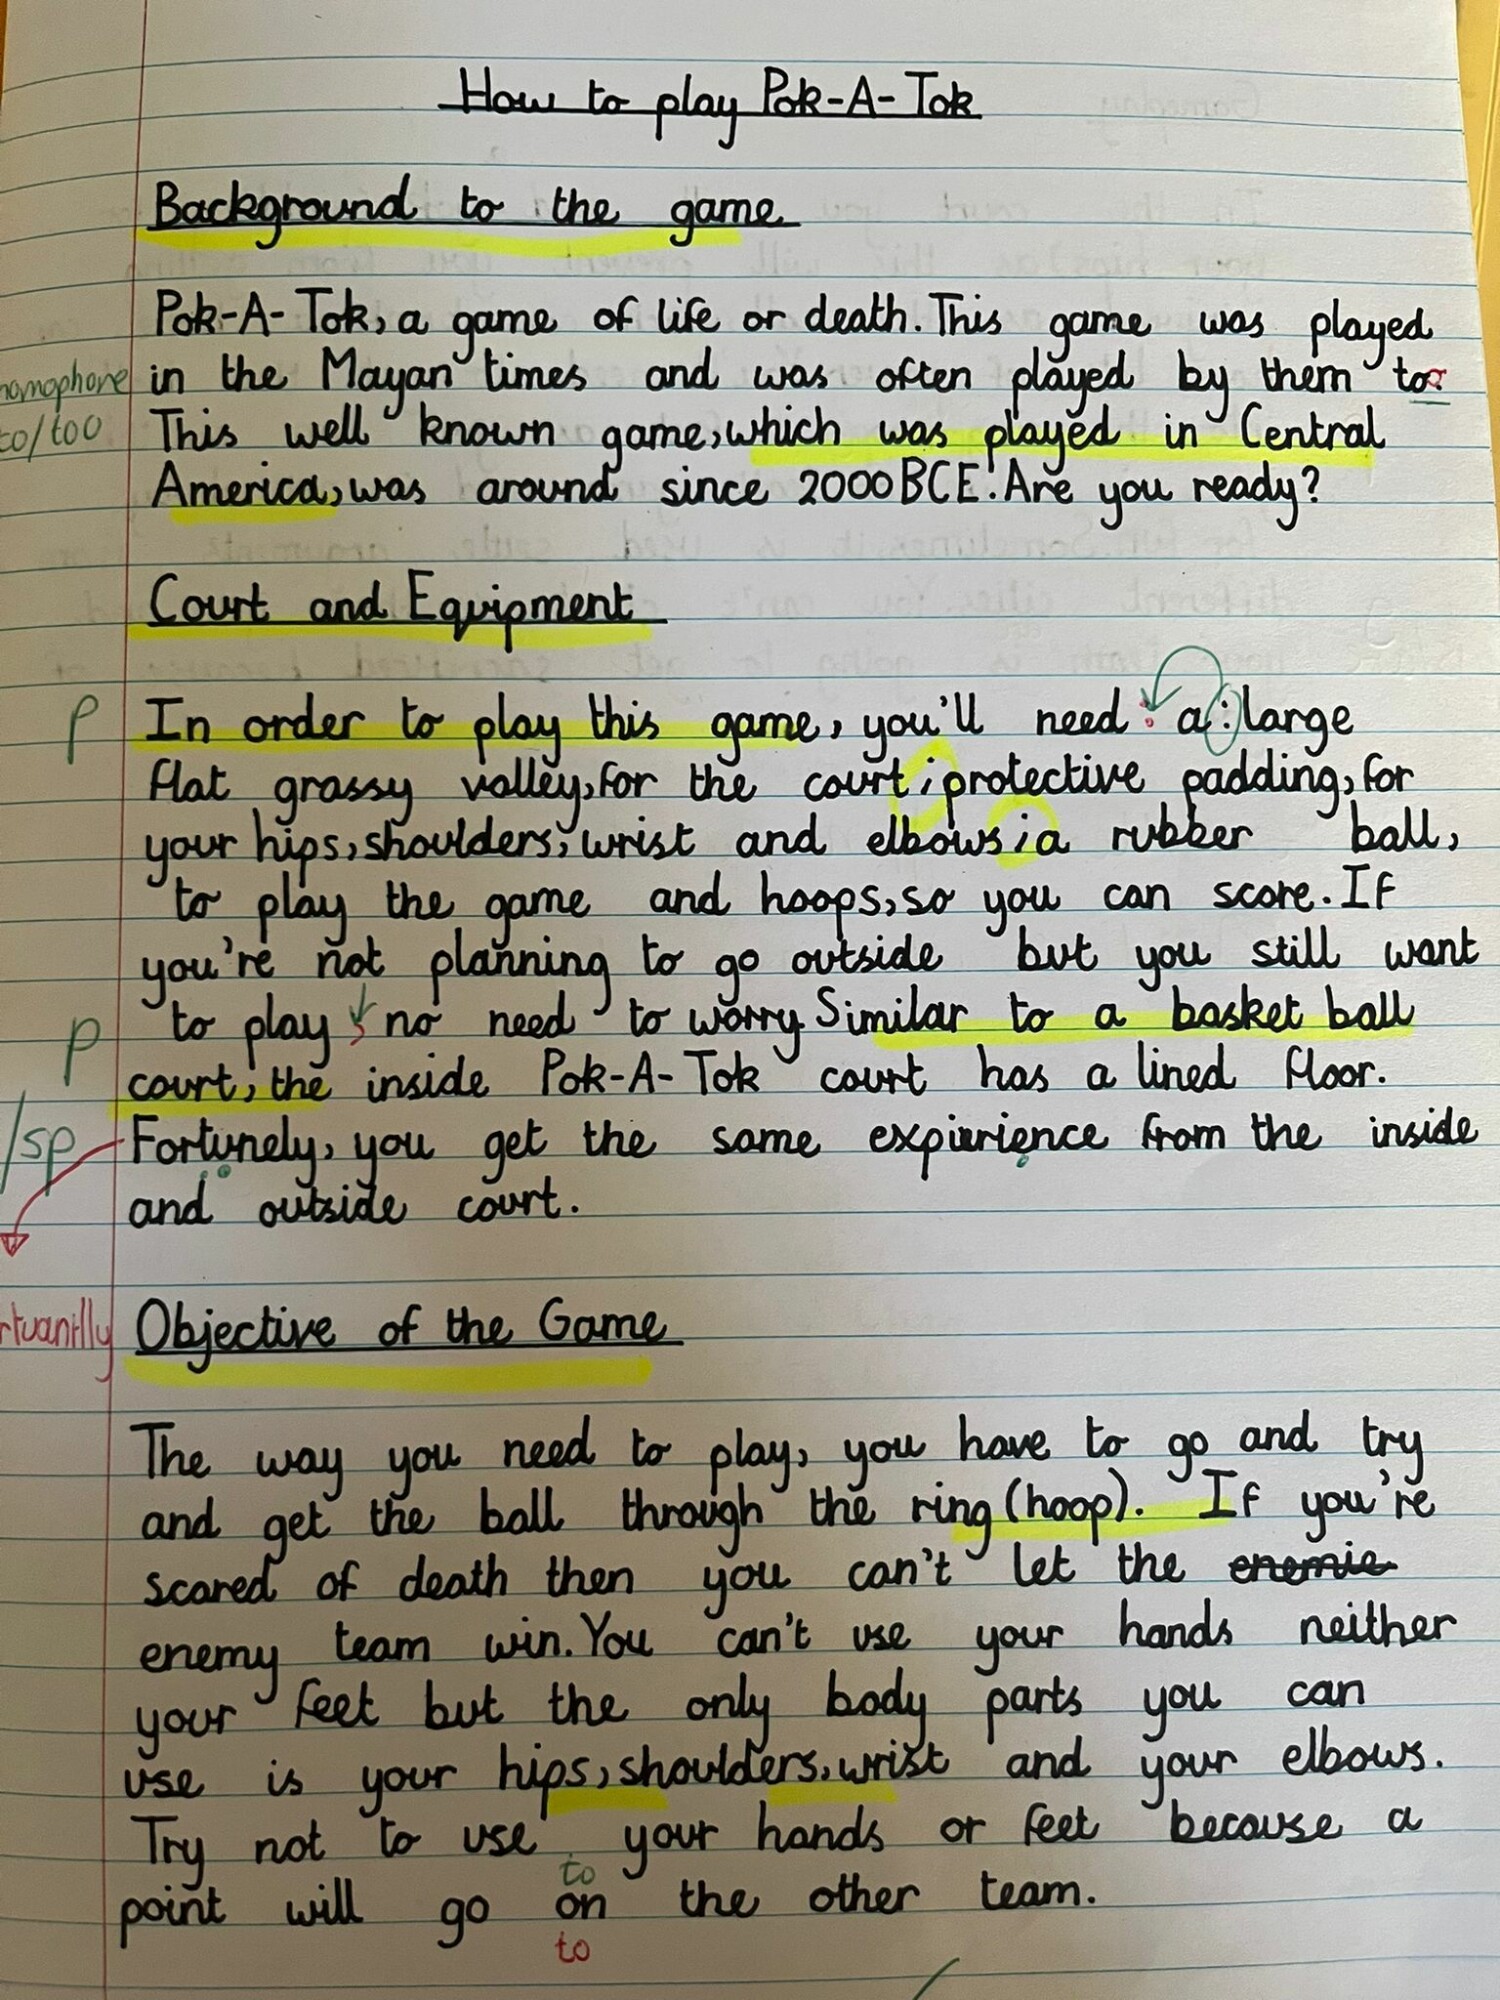 How to play Pok-A-Tok
Background to the game
Pok-A-Tok, a game of life or death. This game was played
homophone in the Mayan times and was often played by them too.
to/too This well known game, which was played in Central
America, was around since 2000 BCE. Are you ready?
Court and Equipment
P In order to play this game, you'll need : a : large
flat grassy valley, for the court ; protective padding, for
your hips, shoulders, wrist and elbows ; a rubber ball,
to play the game and hoops, so you can score. If
you're not planning to go outside but you still want
P to play , no need to worry. Similar to a basket ball
court, the inside Pok-A-Tok court has a lined floor.
/sp Fortunely, you get the same expierience from the inside
and outside court.
rtuantlly Objective of the Game
The way you need to play, you have to go and try
and get the ball through the ring (hoop). If you're
scared of death then you can't let the enemie
enemy team win. You can't use your hands neither
your feet but the only body parts you can
use is your hips, shoulders, wrist and your elbows.
Try not to use your hands or feet because a
to
point will go on the other team.
to